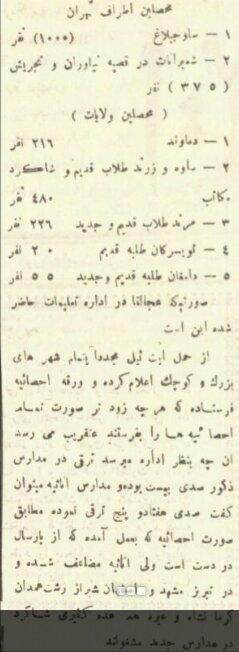 محصلین اطراف تهران
۱ — ساوجبلاغ (۱۰۰۰) نفر
۲ — شمیرانات در قصبه نیاوران و تجریش
(۳۷۵) نفر
(محصلین ولایات)
۱ — دماوند ۲۱۶ نفر
۲ — ساوه و زرند طلاب قدیم و شاگرد
مکاتب ۴۸۰ نفر
۳ — مرند طلاب قدیم و جدید ۲۲۶ نفر
۴ — تویسرکان طلبه قدیم ۲۰ نفر
۵ — دامغان طلبه قدیم وجدید ۵۵ نفر
صورتیکه عجالتا در اداره تعلیمات حاضر
شده این است
از حمل ایت ئیل مجددا بتمام شهر های
بزرك و کوچك اعلام کرده و ورقه احصائیه
فرستاده که هر چه زود تر صورت تمام
احصائیه ها را بفرستند عنقریب می رسد
ان چه بنظر اداره میرسد ترقی در مدارس
ذکور صدی بیست بوده و مدارس اناثیه میتوان
گفت صدی هفتادو پنج ترقی نموده مطابق
صورت احصائیه که بعمل آمده که از پارسال
در دست است ولی اناثیه مضاعف شده و
در تبریز مشهد و شیراز رشت همدان
کرمانشاه و غیره هم عده کثیری شاگرد
در مدارس جدید مشغولند